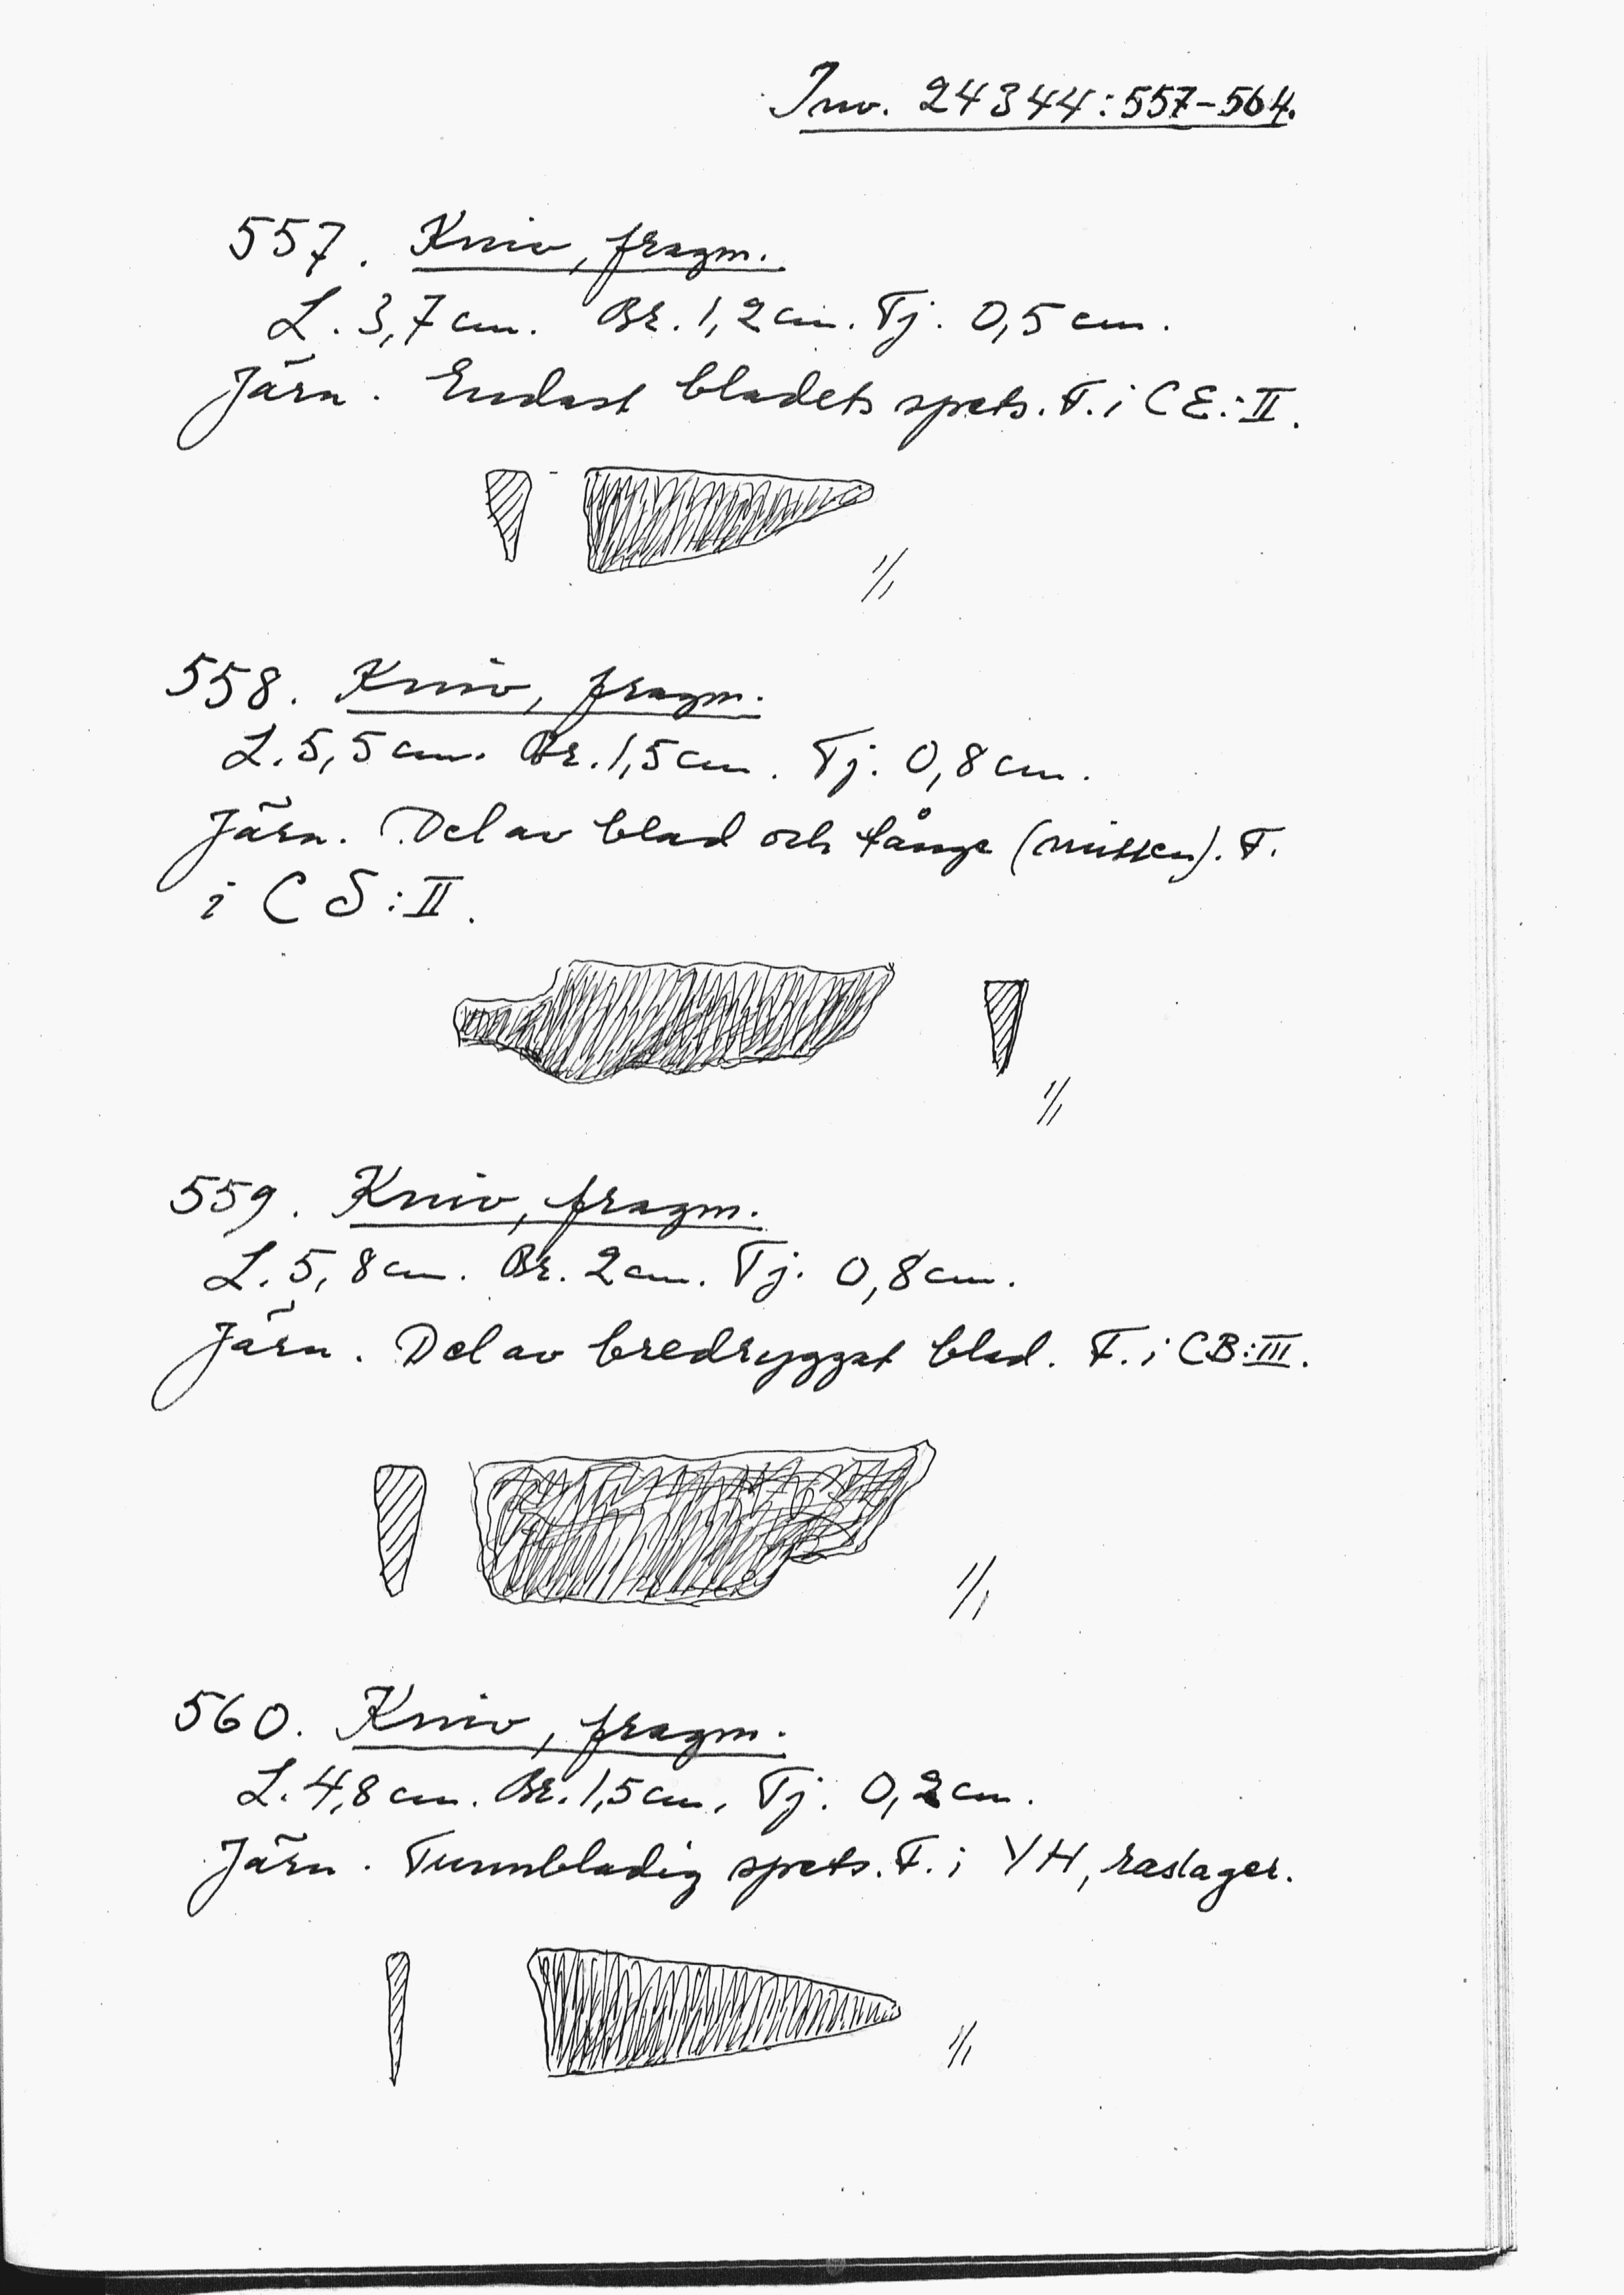 Inv. 24344:557-564.
557. Kniv, fragm.
L. 3,7 cm. Br. 1,2 cm. Tj. 0,5 cm.
Järn. Endast bladets spets. F. i CE:II.
1/1
558. Kniv, fragm.
L. 5,5 cm. Br. 1,5 cm. Tj. 0,8 cm.
Järn. Del av blad och tånge (missen). F.
i CS:II.
1/1
559. Kniv, fragm.
L. 5,8 cm. Br. 2 cm. Tj. 0,8 cm.
Järn. Del av bredryggat blad. F. i CB:III.
1/1
560. Kniv, fragm.
L. 4,8 cm. Br. 1,5 cm. Tj. 0,2 cm.
Järn. Tunnbladig spets. F. i YH, raslager.
1/1